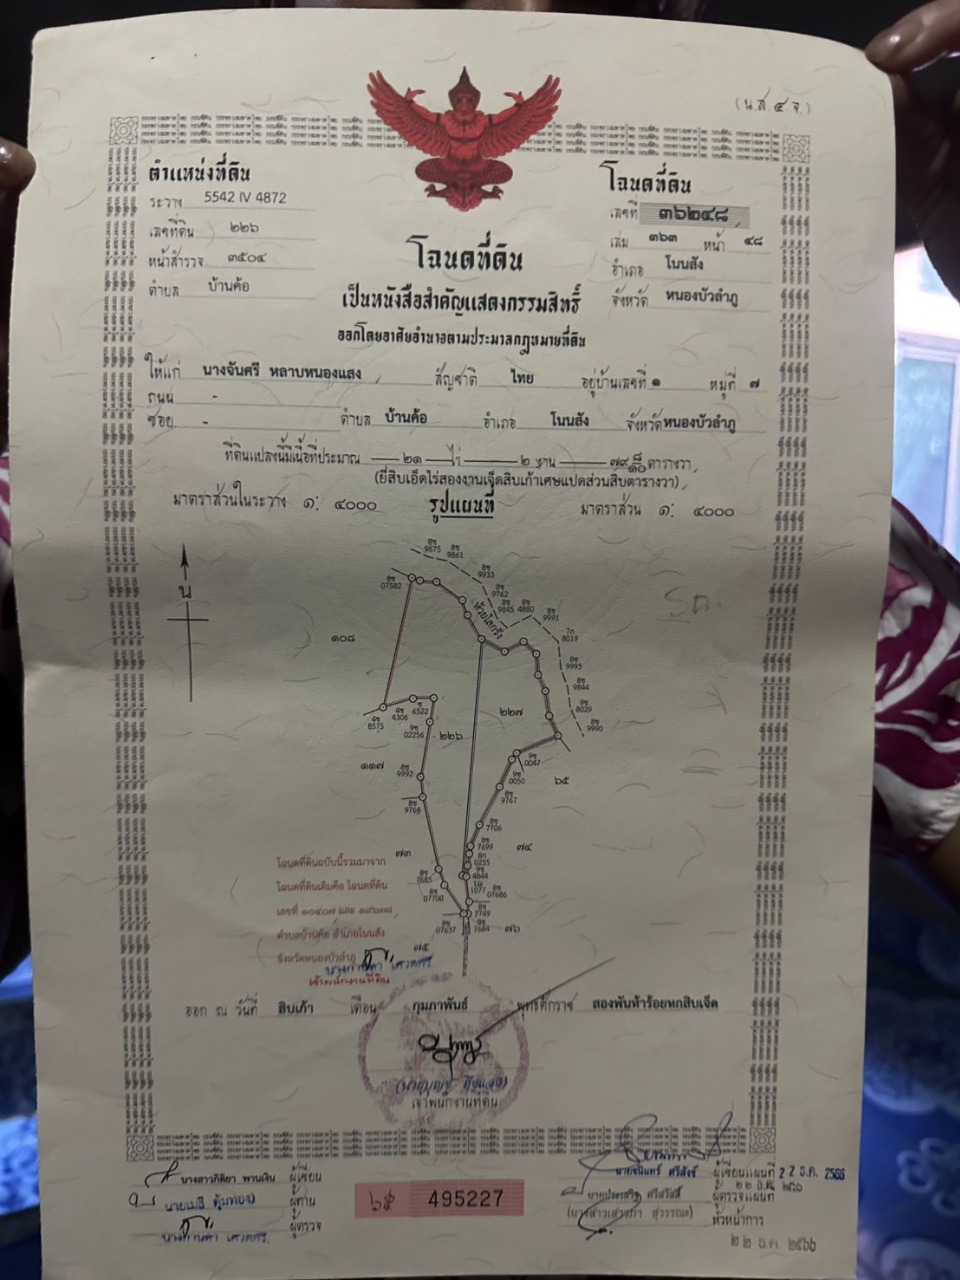 (น.ส. ๔ จ.)
ตำแหน่งที่ดิน
ระวาง 5542 IV 4872
เลขที่ดิน ๒๒๖
หน้าสำรวจ ๓๕๐๔
ตำบล บ้านค้อ
โฉนดที่ดิน
เลขที่ ๓๖๒๔๘
เล่ม ๓๖๓ หน้า ๔๘
อำเภอ โนนสัง
จังหวัด หนองบัวลำภู
โฉนดที่ดิน
เป็นหนังสือสำคัญแสดงกรรมสิทธิ์
ออกโดยอาศัยอำนาจตามประมวลกฎหมายที่ดิน
ให้แก่ นางจันศรี หลาบหนองแสง สัญชาติ ไทย อยู่บ้านเลขที่ ๑ หมู่ที่ ๗
ถนน -
ซอย - ตำบล บ้านค้อ อำเภอ โนนสัง จังหวัด หนองบัวลำภู
ที่ดินแปลงนี้มีเนื้อที่ประมาณ ๒๑ ไร่ ๒ งาน ๗๙ ๘/๑๐ ตารางวา
(ยี่สิบเอ็ดไร่สองงานเจ็ดสิบเก้าเศษแปดส่วนสิบตารางวา)
มาตราส่วนในระวาง ๑: ๔๐๐๐ รูปแผนที่ มาตราส่วน ๑: ๔๐๐๐
น
9875
9861
9933
07582
9762
9845
4880
9991
8019
ห้วยโสกรัง
๑๐๘
9993
9844
8029
9990
6522
4306
8575
02256
๒๒๖
๒๒๗
0047
0050
๖๕
๑๑๗
9992
9767
9768
7706
๗๓
7699
๗๔
0255
7685
4844
1077
07686
07700
7749
07637
7684
๗๖
๗๕
โฉนดที่ดินฉบับนี้รวมมาจาก
โฉนดที่ดินเดิมคือ โฉนดที่ดิน
เลขที่ ๑๐๔๐๗ และ
ตำบลบ้านค้อ อำเภอโนนสัง
จังหวัดหนองบัวลำภู
เจ้าพนักงานที่ดิน
ออก ณ วันที่ สิบเก้า เดือน กุมภาพันธ์ พุทธศักราช สองพันห้าร้อยหกสิบเจ็ด
เจ้าพนักงานที่ดิน
นางสาวกิติยา พานเงิน ผู้เขียน
นายเมธี ตุ้มทอง ผู้ทาน
ผู้ตรวจ
๖๕ 495227
ผู้เขียนแผนที่ 2 2 ธ.ค. 2566
ผู้ตรวจแผนที่
หัวหน้าการ
๒๒ ธ.ค. ๒๕๖๖